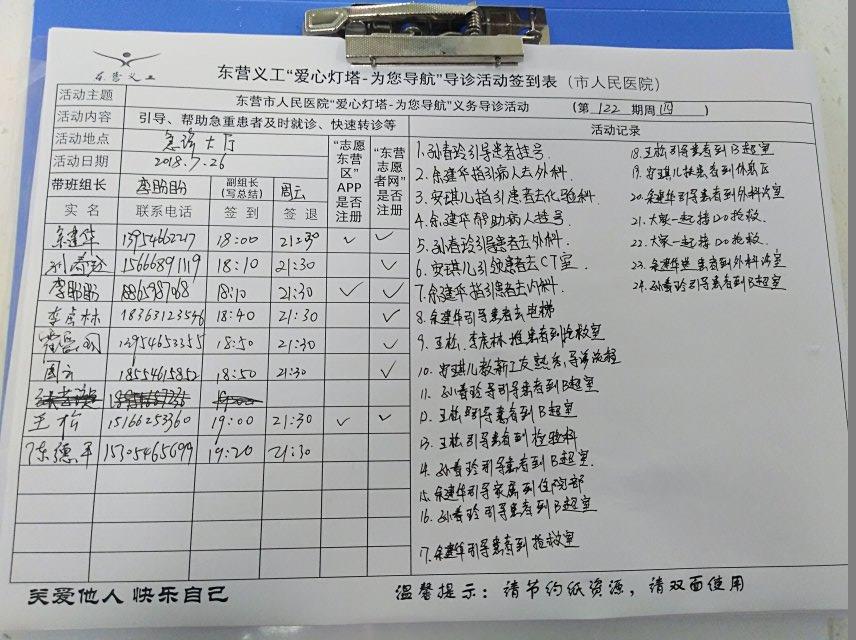 东营义工
东营义工“爱心灯塔-为您导航”导诊活动签到表（市人民医院）
活动主题 东营市人民医院“爱心灯塔-为您导航”义务导诊活动 （第 122 期周四）
活动内容 引导、帮助急重患者及时就诊、快速转诊等
活动地点 急诊大厅
活动日期 2018.7.26
带班组长 李盼盼 副组长（写总结） 周云
“志愿东营区”APP是否注册
“东营志愿者网”是否注册
活动记录
实名 联系电话 签到 签退
余建华 13954662217 18:00 21:30 ✓ ✓
孙春玲 15666891119 18:10 21:30 ✓
李盼盼 18:10 21:30 ✓ ✓
李虎林 18363123546 18:40 21:30 ✓
13954653255 18:50 21:30 ✓
周云 18554615852 18:50 21:30 ✓
王松 15166253360 19:00 21:30 ✓ ✓
陈德平 15305465699 19:20 21:30
1.孙春玲引导患者挂号.
2.余建华指引病人去外科.
3.安琪儿指引患者去化验科.
4.余建华帮助病人挂号.
5.孙春玲引导患者去外科.
6.安琪儿引领患者去CT室.
7.余建华指引患者去内科.
8.余建华引导患者去电梯
9.王松、李虎林推患者到抢救室
10.安琪儿教新工友熟悉导诊流程
11.孙春玲导引导患者到B超室
12.王松引导患者到B超室
13.王松引导患者到检验科
14.孙春玲引导患者到B超室.
15.余建华引导家属到住院部
16.孙春玲引导患者到B超室
17.余建华引导患者到抢救室
18.王松引导患者到B超室
19.安琪儿扶患者到休息区
20.余建华引导患者到外科诊室
21.大家一起接120抢救.
22.大家一起接120抢救.
23.余建华推患者到外科诊室
24.孙春玲引导患者到B超室
关爱他人 快乐自己
温馨提示：请节约纸资源，请双面使用